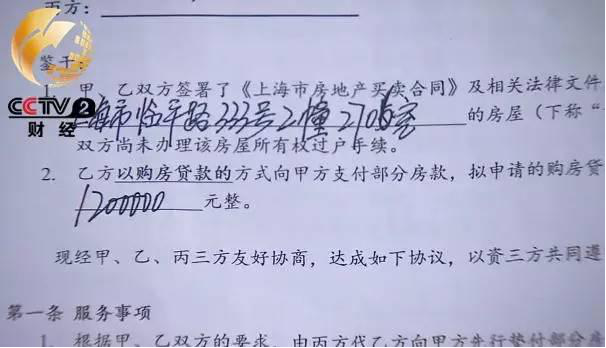 丙方：
鉴于：
1. 甲、乙双方签署了《上海市房地产买卖合同》及相关法律文件
CCTV 2
财经
海市临平路333号2幢2706室的房屋（下称“
双方尚未办理该房屋所有权过户手续。
2. 乙方以购房贷款的方式向甲方支付部分房款，拟申请的购房贷
1200000元整。
现经甲、乙、丙三方友好协商，达成如下协议，以资三方共同遵
第一条 服务事项
1. 根据甲、乙双方的要求，由丙方代乙方向甲方先行垫付部分房